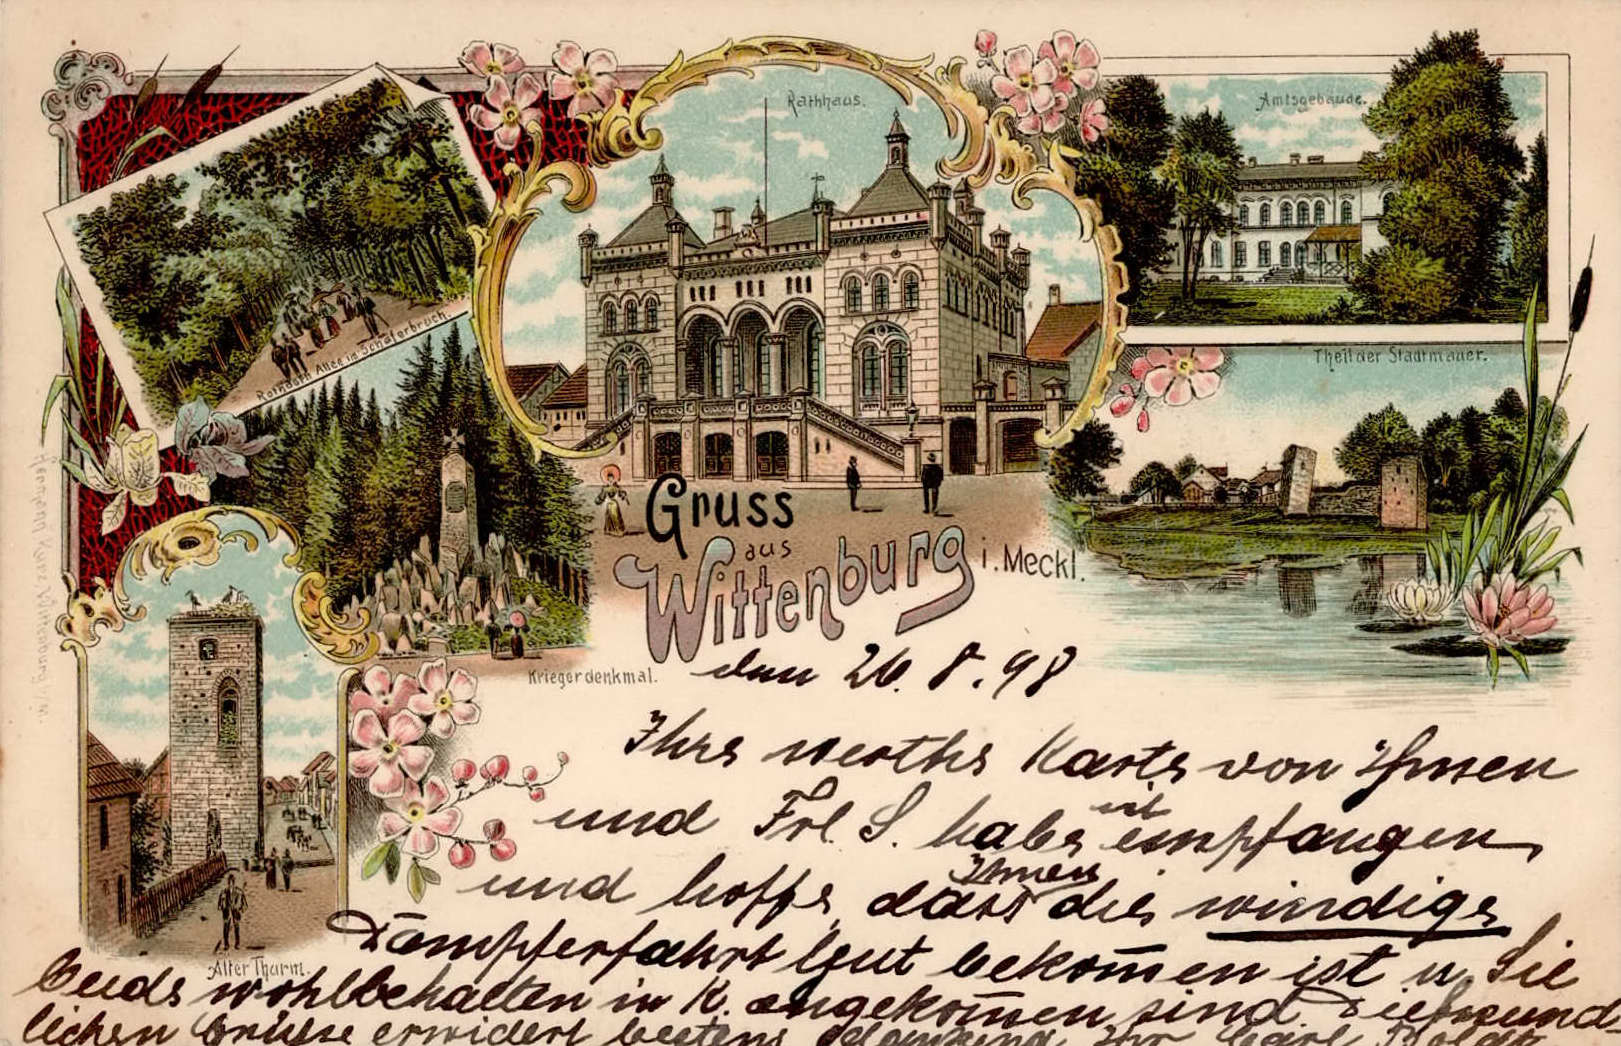 Rathhaus.
Amtsgebäude.
Allee im Schäferbruch.
Theil der Stadtmauer.
Gruss
aus
Wittenburg i. Meckl.
Kriegerdenkmal.
Alter Thurm.
Hermann Kunz, Wittenburg i. M.
den 26. 8. 98
Ihre werthe Karte von Ihnen
und Frl. S. habe mit empfangen
und hoffe, dass Ihnen die windige
Dampferfahrt gut bekom̄en ist u. Sie
beide wohlbehalten in K. angekom̄en sind. Die freund-
lichen Grüsse erwidert bestens dankend Ihr Carl Boldt